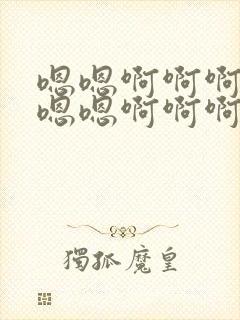 嗯嗯啊啊啊
嗯嗯啊啊啊
獨孤魔皇